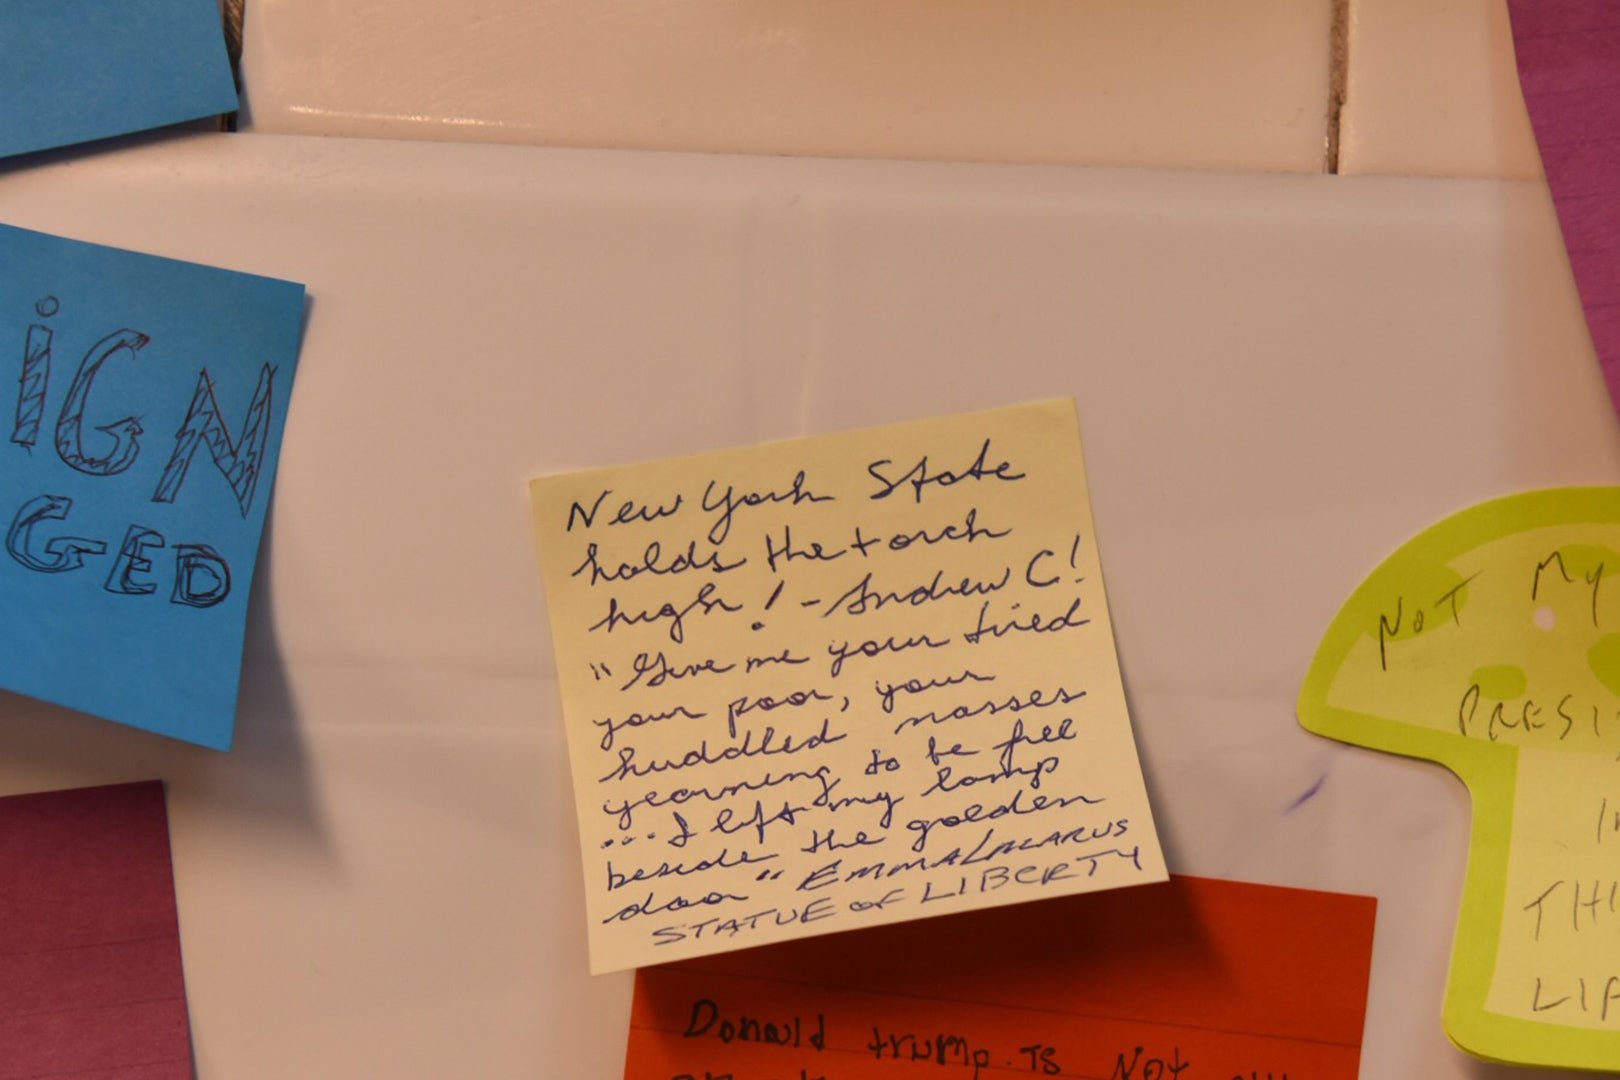 iGN
GED
New York State
holds the torch
high! - Andrew C!
"Give me your tired
your poor, your
huddled masses
yearning to be free
...I left my lamp
beside the golden
door" EMMA LAZARUS
STATUE OF LIBERTY
NOT My
PRESI
IN
THI
LIF
Donald trump. IS Not